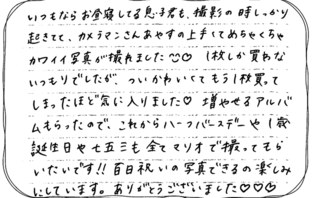 いつもならお昼寝してる息子君も、撮影の時しっかり
起きてて、カメラマンさんあやすの上手くてめちゃくちゃ
カワイイ写真が撮れました♡ 1枚しか買わな
いつもりでしたが、ついかわいくてもう1枚買って
しまったほど気に入りました♡ 増やせるアルバ
ムもらったので、これからハーフバースデーや1歳
誕生日や七五三も全てマリオで撮ってもら
いたいです!! 百日祝いの写真できるの楽しみ
にしています。ありがとうございました♡♡♡